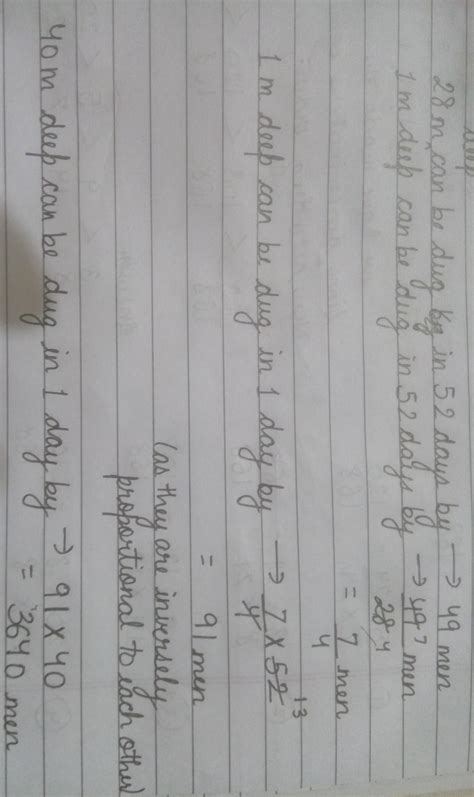 deep
28 m ^ can be dug by in 52 days by → 49 men
1 m deep can be dug in 52 days by → 49 7 / 28 4 men
= 7/4 men
1 m deep can be dug in 1 day by → 7 × 52 13 / 4
= 91 men
(as they are inversely
proportional to each other)
40 m deep can be dug in 1 day by → 91 × 40
= 3640 men